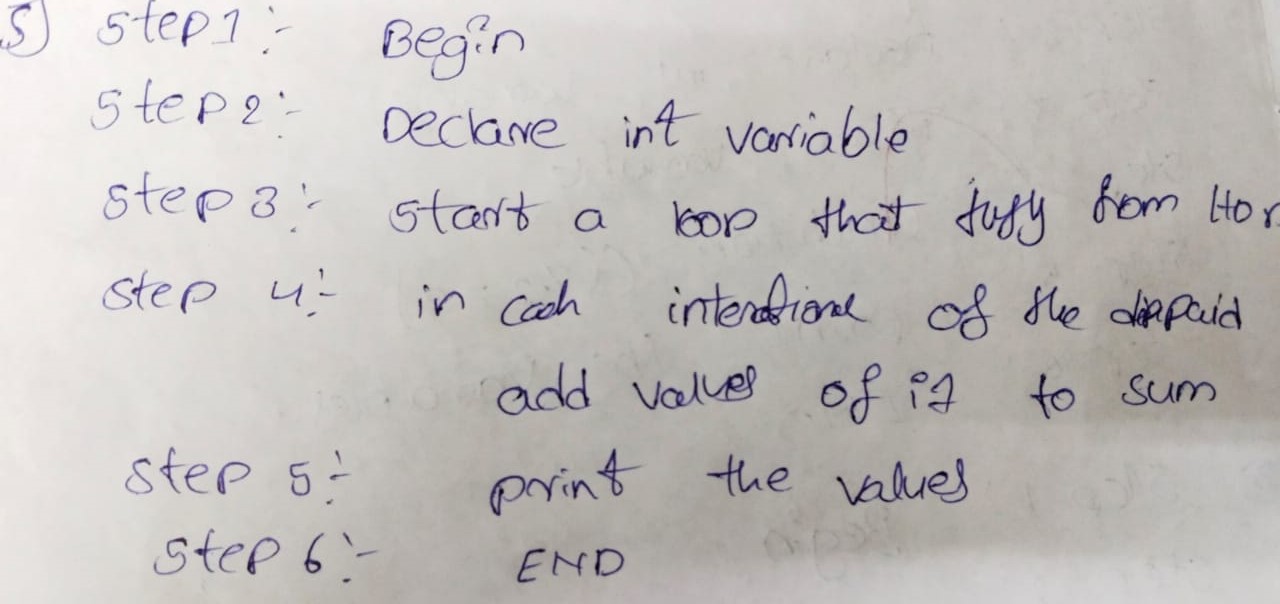 5) Step 1 :- Begin
Step 2 :- Declare int variable
Step 3 :- Start a loop that from 1 to n
Step 4 :- in each of the
add values of to sum
Step 5 :- print the values
Step 6 :- END